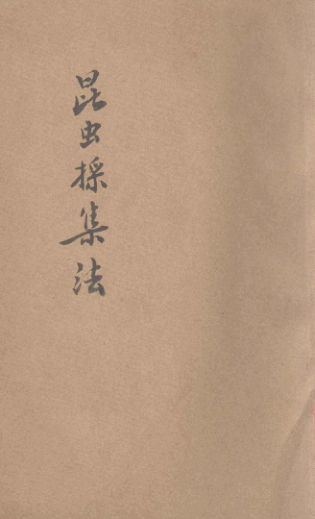 昆虫採集法